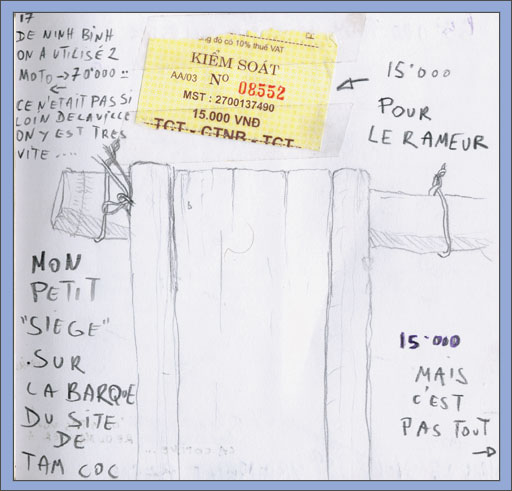 17
DE NINH BÌNH
ON A UTILISÉ 2
MOTO → 70'000 !!
←
CE N'ÉTAIT PAS SI
LOIN DE LA VILLE
ON Y EST TRÈS
VITE ....
ng đó có 10% thuế VAT
KIỂM SOÁT
AA/03 Nº 08552
MST : 2700137490
15.000 VNĐ
TCT - CTNB - TCT
← 15'000
POUR
LE RAMEUR
MON
PETIT
"SIÈGE"
SUR
LA BARQUE
DU SITE
DE
TAM COC
15'000
MAIS
C'EST
PAS TOUT
→